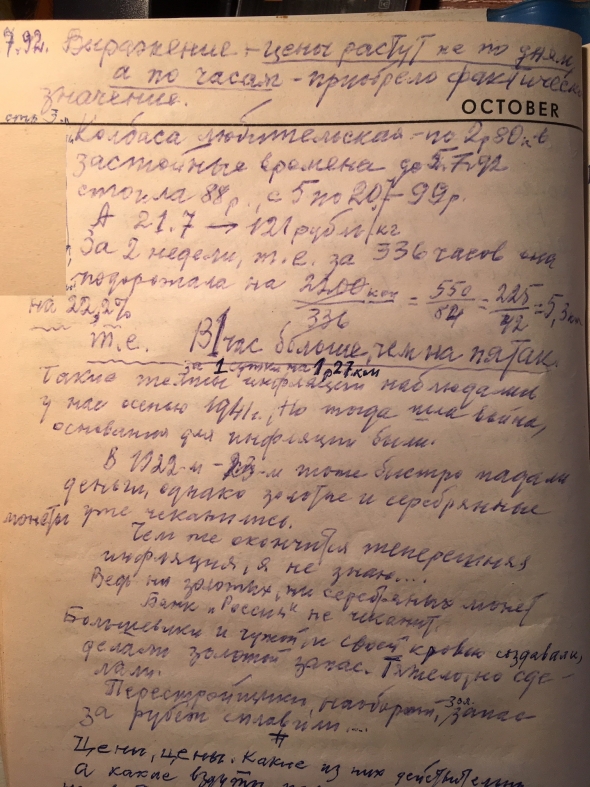 7.92. Выражение - цены растут не по дням
а по часам - приобрело фактическ
значение.
OCTOBER
Колбаса любительская - по 2р80к в
застойные времена до 5.7.92
стоила 88р., с 5 по 20.7 - 99р.
А 21.7 → 121 рубль/кг
За 2 недели, т.е. за 336 часов она
подорожала на 2200 коп / 336 = 550 / 84 = 225 / 42 = 5,3 коп
на 22,2%
т.е. В 1 час больше, чем на пятак.
за 1 сутки на 1р27коп
Такие темпы инфляции наблюдали
у нас осенью 1941г. Но тогда шла война,
основания для инфляции были.
В 1922-м - 23-м тоже быстро падали
деньги, однако золотые и серебрянные
монеты уже чеканились.
Чем же окончится теперешняя
инфляция, я не знаю....
Ведь ни золотых, ни серебряных монет
Банк „Россия" не чеканит.
Большевики и чужой, и своей кровью создавали,
делали золотой запас. Тяжело, но сде-
лали.
Перестройщики, наоборот, зол. запас
за рубеж сплавили....
#
Цены, цены. Какие из них действительны
а какие вздуты